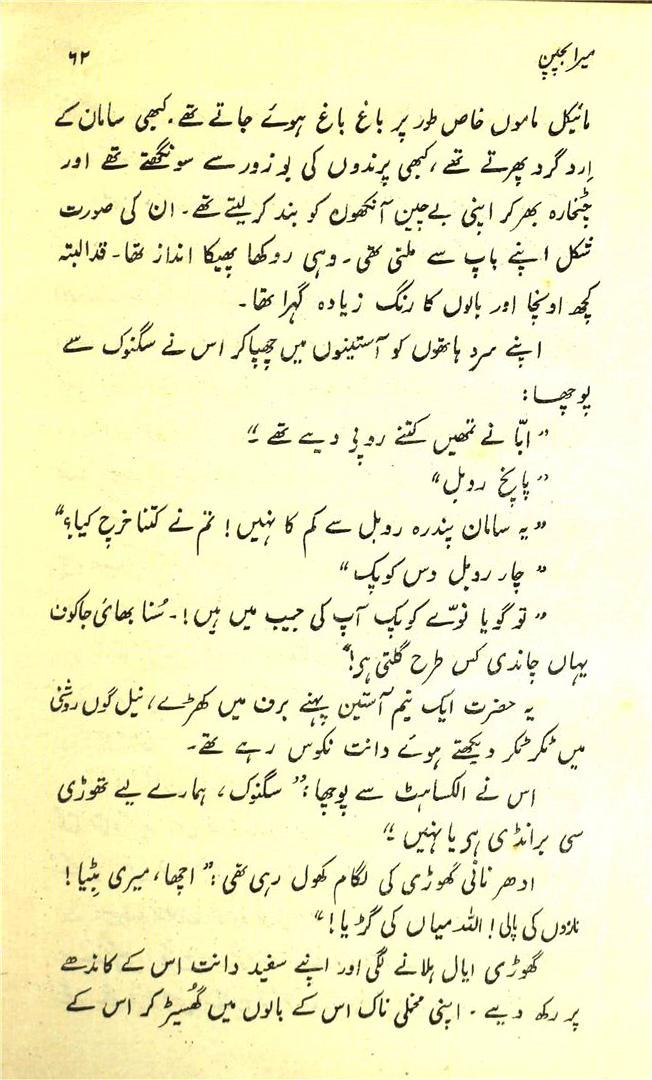 میرا بچپن ۶۲
مائیکل ماموں خاص طور پر باغ باغ ہوئے جاتے تھے. کبھی سامان کے
اِرد گرد پھرتے تھے، کبھی پرندوں کی بو زور سے سونگھتے تھے اور
چٹخارہ بھر کر اپنی بے چین آنکھوں کو بند کر لیتے تھے۔ ان کی صورت
شکل اپنے باپ سے ملتی تھی۔ وہی روکھا پھیکا انداز تھا۔ قد البتہ
کچھ اونچا اور بالوں کا رنگ زیادہ گہرا تھا۔
اپنے سرد ہاتھوں کو آستینوں میں چھپا کر اس نے سگنوک سے
پوچھا:
"ابّا نے تمھیں کتنے روپے دیے تھے۔"
"پانچ روبل"
"یہ سامان پندرہ روبل سے کم کا نہیں! تم نے کتنا خرچ کیا؟"
"چار روبل دس کوپک"
"تو گویا نوّے کوپک آپ کی جیب میں ہیں!۔ سُنا بھائی جاکون
یہاں چاندی کس طرح گلتی ہی!"
یہ حضرت ایک نیم آستین پہنے برف میں کھڑے، نیل گوں روشنی
میں ٹکر ٹکر دیکھتے ہوئے دانت نکوس رہے تھے۔
اس نے الکساہٹ سے پوچھا: "سگنوک، ہمارے لیے تھوڑی
سی برانڈی ہی یا نہیں۔"
ادھر نانی گھوڑی کی لگام کھول رہی تھی: "اچھا، میری بٹیا!
نازوں کی پالی! اللہ میاں کی گڑیا!"
گھوڑی ایال ہلانے لگی اور اپنے سفید دانت اس کے کاندھے
پر رکھ دیے۔ اپنی مخملی ناک اس کے بالوں میں گھُسیڑ کر اس کے